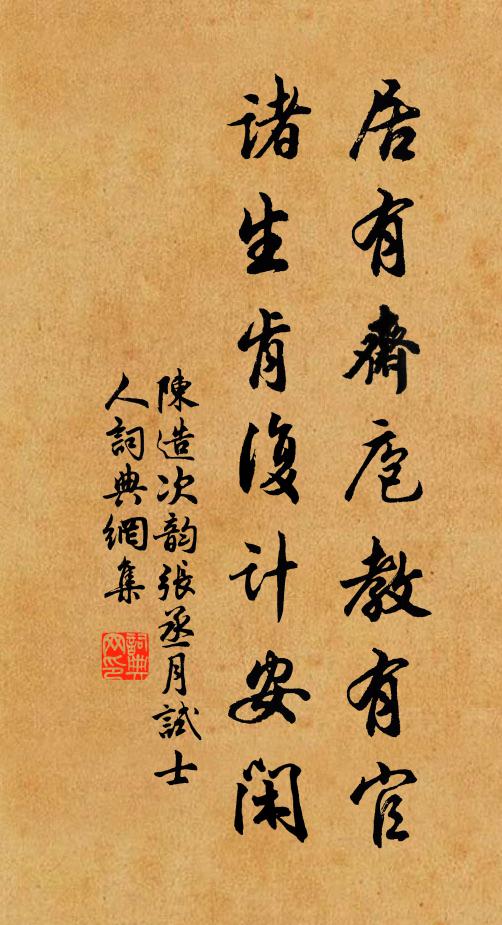 居有齋庖教有官
諸生肯復計安閑
陳造次韵張丞月試士
人詞典網集
詞典網印